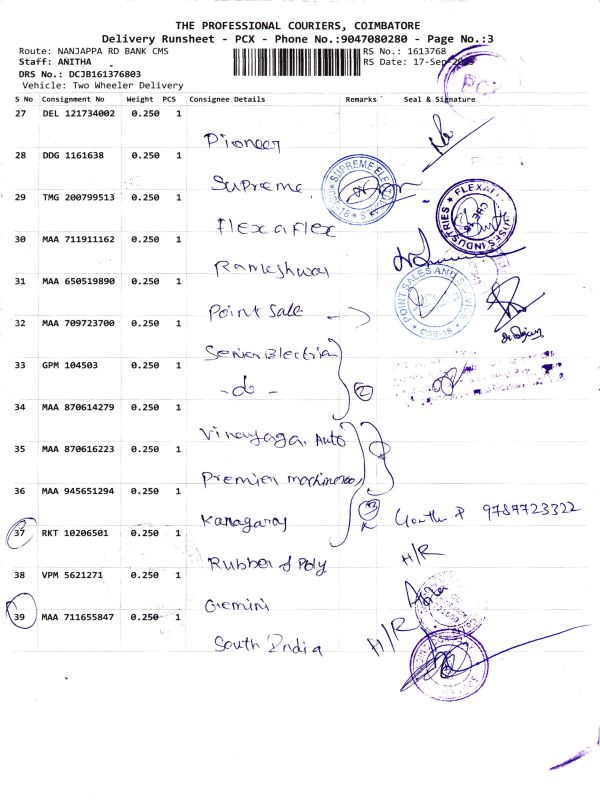 THE PROFESSIONAL COURIERS, COIMBATORE
Delivery Runsheet - PCX - Phone No.:9047080280 - Page No.:3
Route: NANJAPPA RD BANK CMS RS No.: 1613768
Staff: ANITHA RS Date: 17-Sep
DRS No.: DCJB161376803
Vehicle: Two Wheeler Delivery
PCX
S No Consignment No Weight PCS Consignee Details Remarks Seal & Signature
27 DEL 121734002 0.250 1
Pioneer
28 DDG 1161638 0.250 1
Supreme
SUPREME
29 TMG 200799513 0.250 1
Flex a Flex
FLEXA
INDUSTRIES
30 MAA 711911162 0.250 1
Rameshwar
31 MAA 650519890 0.250 1
Point Sale
POINT SALES AND SERVICE
CBE-18
32 MAA 709723700 0.250 1
33 GPM 104503 0.250 1
- do - 2
34 MAA 870614279 0.250 1
Vinayaga. Auto
35 MAA 870616223 0.250 1
Premier
36 MAA 945651294 0.250 1
Kanagaraj 9789723322
37 RKT 10206501 0.250 1
H/R
Rubber & Poly
38 VPM 5621271 0.250 1
Gemini
39 MAA 711655847 0.250 1
H/R
South India